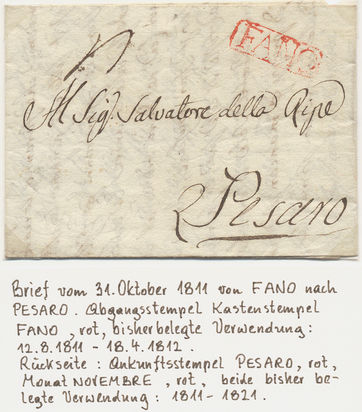 FANO
Al Sig.r Salvatore della Ripe
Pesaro
Brief vom 31. Oktober 1811 von FANO nach
PESARO. Abgangsstempel Kastenstempel
FANO, rot, bisher belegte Verwendung:
12.8.1811 - 18.4.1812.
Rückseite: Ankunftsstempel PESARO, rot,
Monat NOVEMBRE, rot, beide bisher be-
legte Verwendung: 1811 - 1821.